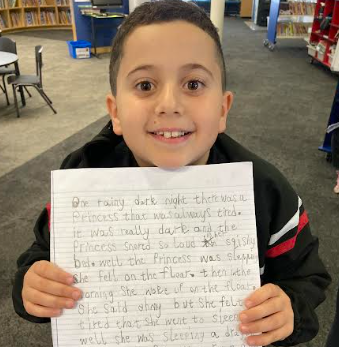 One rainy dark night there was a
Princess that was always tired.
it was really dark and the
Princess snored so loud
but. well the Princess was
She fell on the floar. then in the
morning She woke up on the floar
She said ahny but She felt
tired that She went to sleep
well she was sleeping a